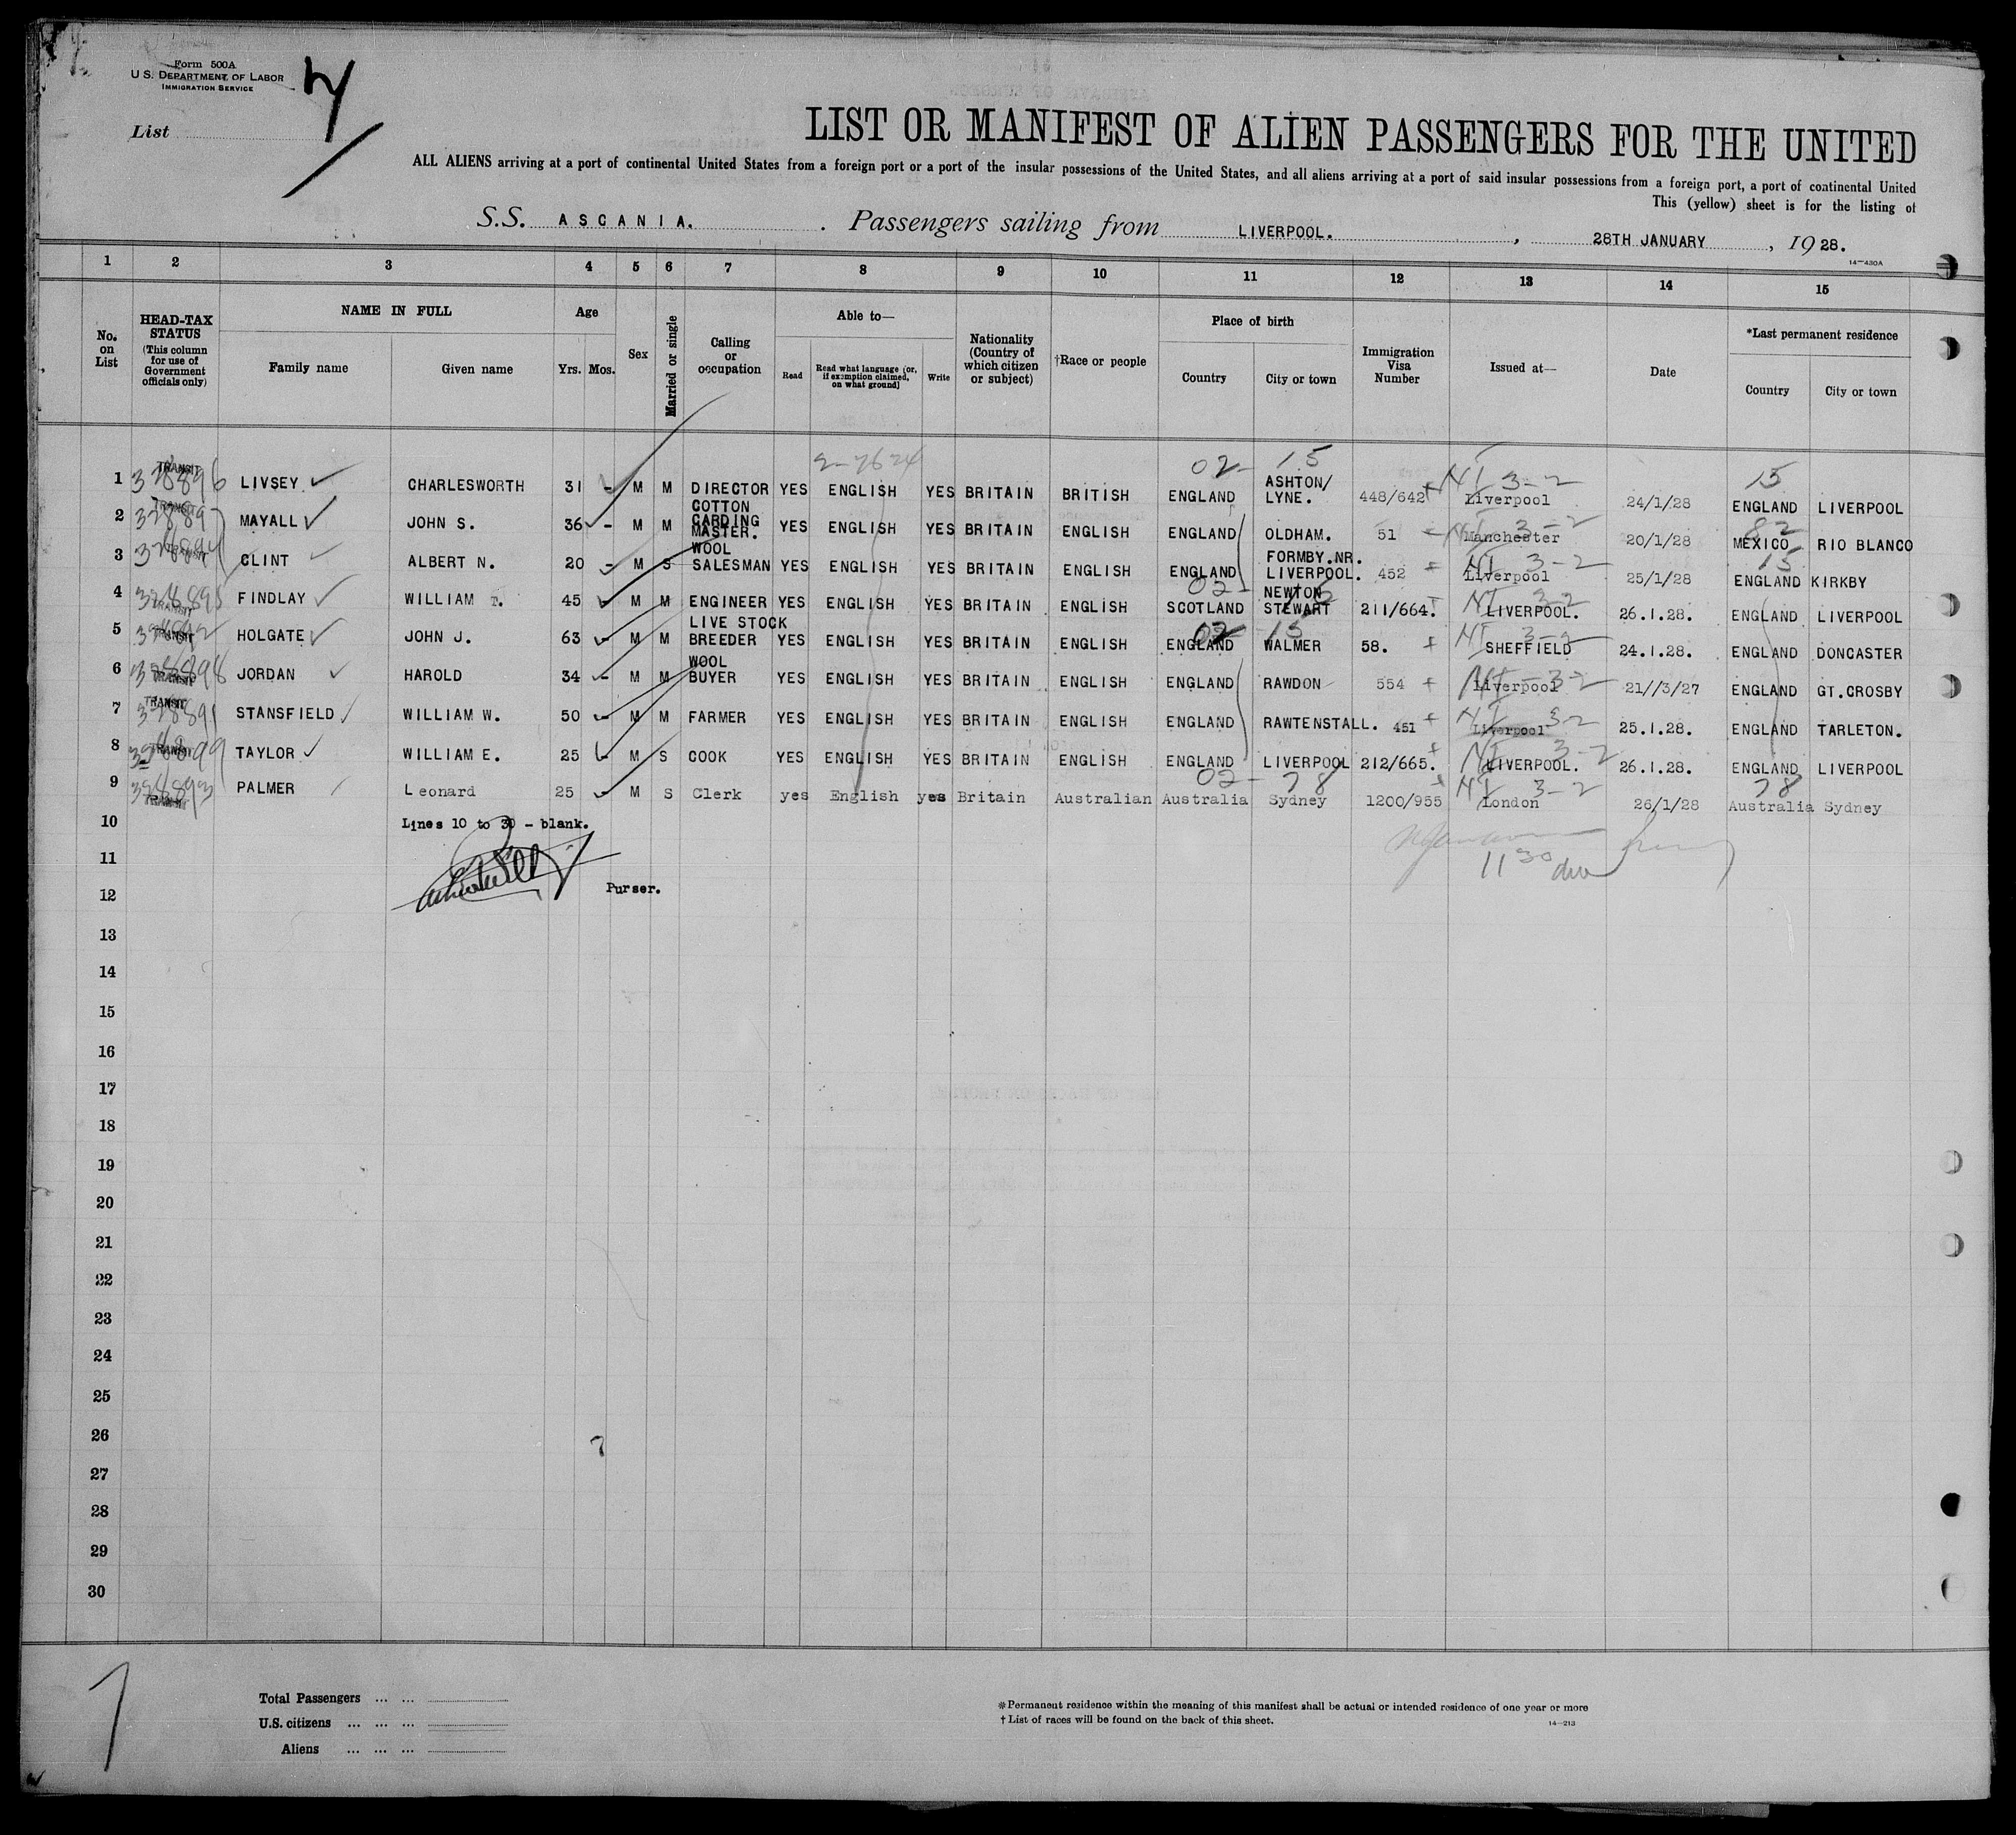 Form 500A
U. S. DEPARTMENT OF LABOR
IMMIGRATION SERVICE
List
LIST OR MANIFEST OF ALIEN PASSENGERS FOR THE UNITED
ALL ALIENS arriving at a port of continental United States from a foreign port or a port of the insular possessions of the United States, and all aliens arriving at a port of said insular possessions from a foreign port, a port of continental United
This (yellow) sheet is for the listing of
S.S. ASCANIA. Passengers sailing from LIVERPOOL. , 28TH JANUARY , 1928.
14—430A
1 2 3 4 5 6 7 8 9 10 11 12 13 14 15
No. on List
HEAD-TAX STATUS (This column for use of Government officials only)
NAME IN FULL
Family name Given name
Age
Yrs. Mos.
Sex
Married or single
Calling or occupation
Able to—
Read Read what language [or, if exemption claimed, on what ground] Write
Nationality (Country of which citizen or subject)
†Race or people
Place of birth
Country City or town
Immigration Visa Number
Issued at—
Date
*Last permanent residence
Country City or town
2-7624 02- 15 15
1 TRANSIT 328896 LIVSEY CHARLESWORTH 31 - M M DIRECTOR YES ENGLISH YES BRITAIN BRITISH ENGLAND ASHTON/ LYNE. 448/642 NI 3-2 Liverpool 24/1/28 ENGLAND LIVERPOOL
2 TRANSIT MAYALL JOHN S. 36 - M M COTTON CARDING MASTER. YES ENGLISH YES BRITAIN ENGLISH ENGLAND OLDHAM. 51 3-2 Manchester 20/1/28 82 MEXICO RIO BLANCO
3 TRANSIT CLINT ALBERT N. 20 - M S WOOL SALESMAN YES ENGLISH YES BRITAIN ENGLISH ENGLAND FORMBY.NR. LIVERPOOL. 452 NI 3-2 Liverpool 25/1/28 15 ENGLAND KIRKBY
4 TRANSIT 328895 FINDLAY WILLIAM T. 45 M M ENGINEER YES ENGLISH YES BRITAIN ENGLISH 02- SCOTLAND NEWTON STEWART 211/664. NI 3-2 LIVERPOOL. 26.1.28. ENGLAND LIVERPOOL
5 TRANSIT HOLGATE JOHN J. 63 - M M LIVE STOCK BREEDER YES ENGLISH YES BRITAIN ENGLISH 02- 15 ENGLAND WALMER 58. NI 3-2 SHEFFIELD 24.1.28. ENGLAND DONCASTER
6 TRANSIT 328898 JORDAN HAROLD 34 - M M WOOL BUYER YES ENGLISH YES BRITAIN ENGLISH ENGLAND RAWDON 554 NI 3-2 Liverpool 21//3/27 ENGLAND GT.CROSBY
7 TRANSIT 328891 STANSFIELD WILLIAM W. 50 - M M FARMER YES ENGLISH YES BRITAIN ENGLISH ENGLAND RAWTENSTALL. 451 NI 3-2 Liverpool 25.1.28. ENGLAND TARLETON.
8 TRANSIT 328899 TAYLOR WILLIAM E. 25 - M S COOK YES ENGLISH YES BRITAIN ENGLISH ENGLAND LIVERPOOL 212/665. NI 3-2 LIVERPOOL. 26.1.28. ENGLAND LIVERPOOL
9 TRANSIT 328893 PALMER Leonard 25 - M S Clerk yes English yes Britain Australian 02- 78 Australia Sydney 1200/955 NI 3-2 London 26/1/28 78 Australia Sydney
10 Lines 10 to 30 - blank.
11 11 30
12 Purser.
13
14
15
16
17
18
19
20
21
22
23
24
25
26
27
28
29
30
Total Passengers ... ...
U.S. citizens ... ... ...
Aliens ... ... ...
* Permanent residence within the meaning of this manifest shall be actual or intended residence of one year or more
† List of races will be found on the back of this sheet.
14—213